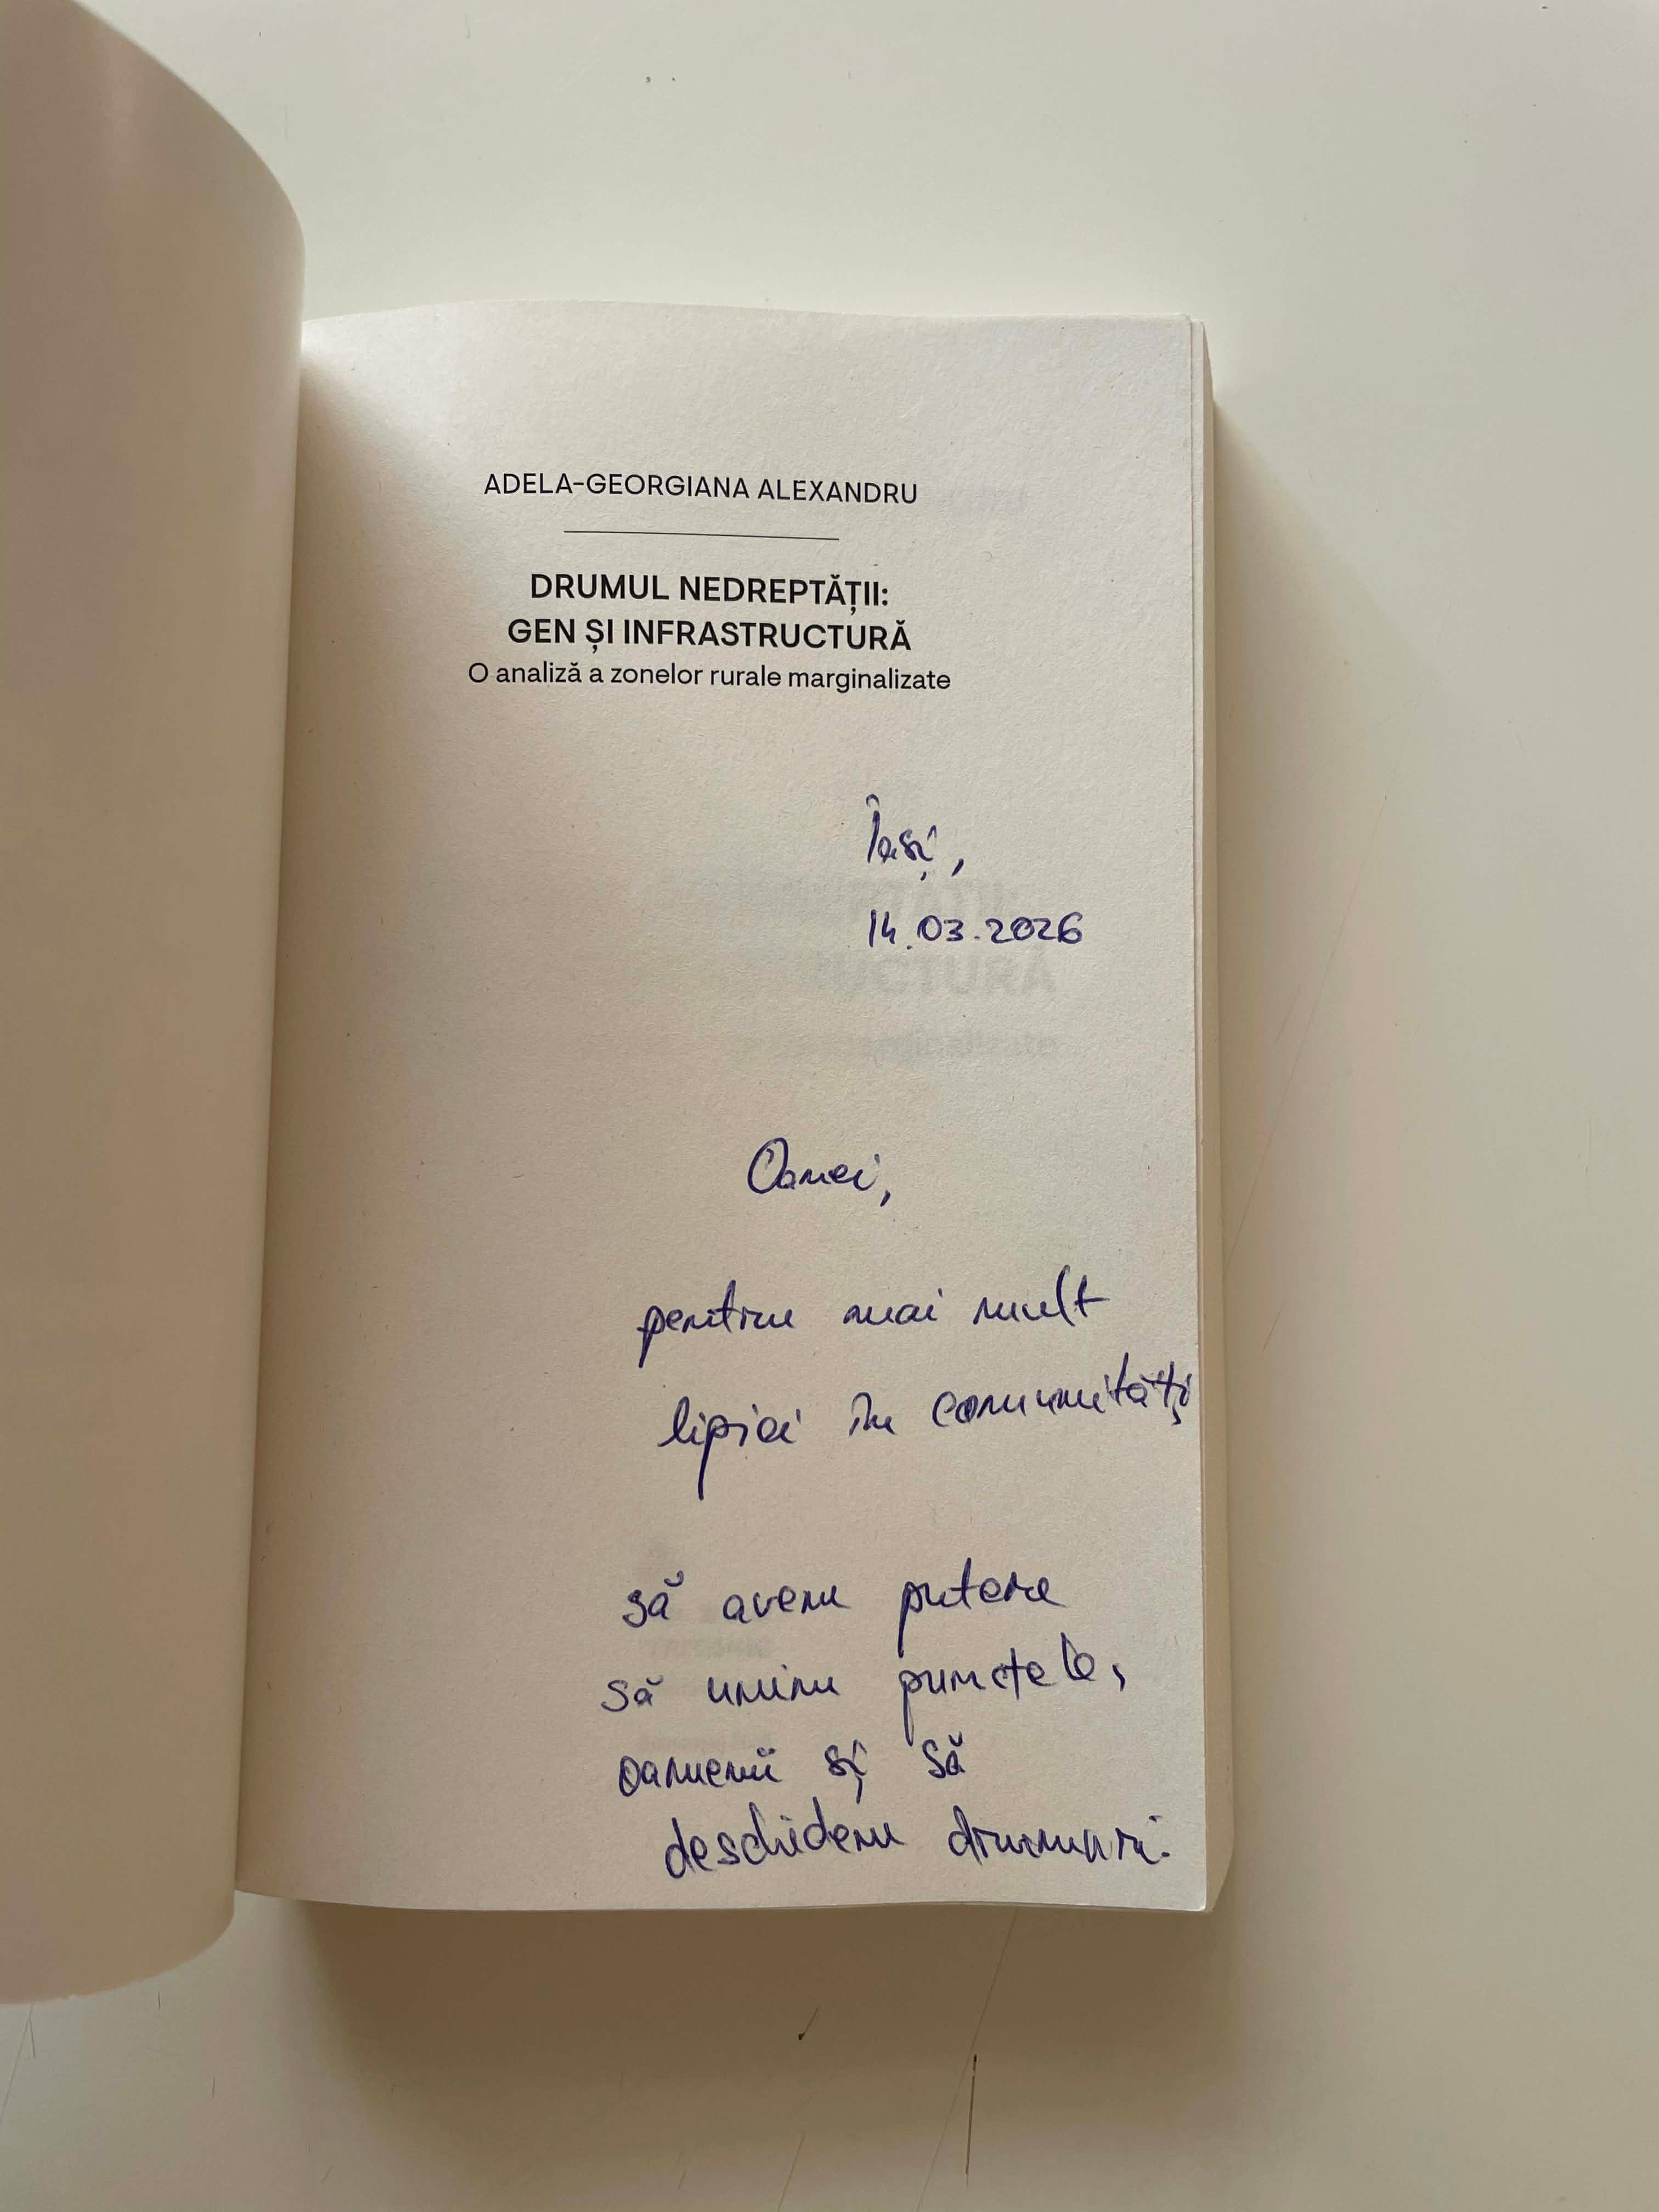 ADELA-GEORGIANA ALEXANDRU
DRUMUL NEDREPTĂȚII:
GEN ȘI INFRASTRUCTURĂ
O analiză a zonelor rurale marginalizate
Iași,
14.03.2026
Oanei,
pentru mai mult
lipici în comunități
să avem putere
să unim punctele,
oamenii și să
deschidem drumuri.